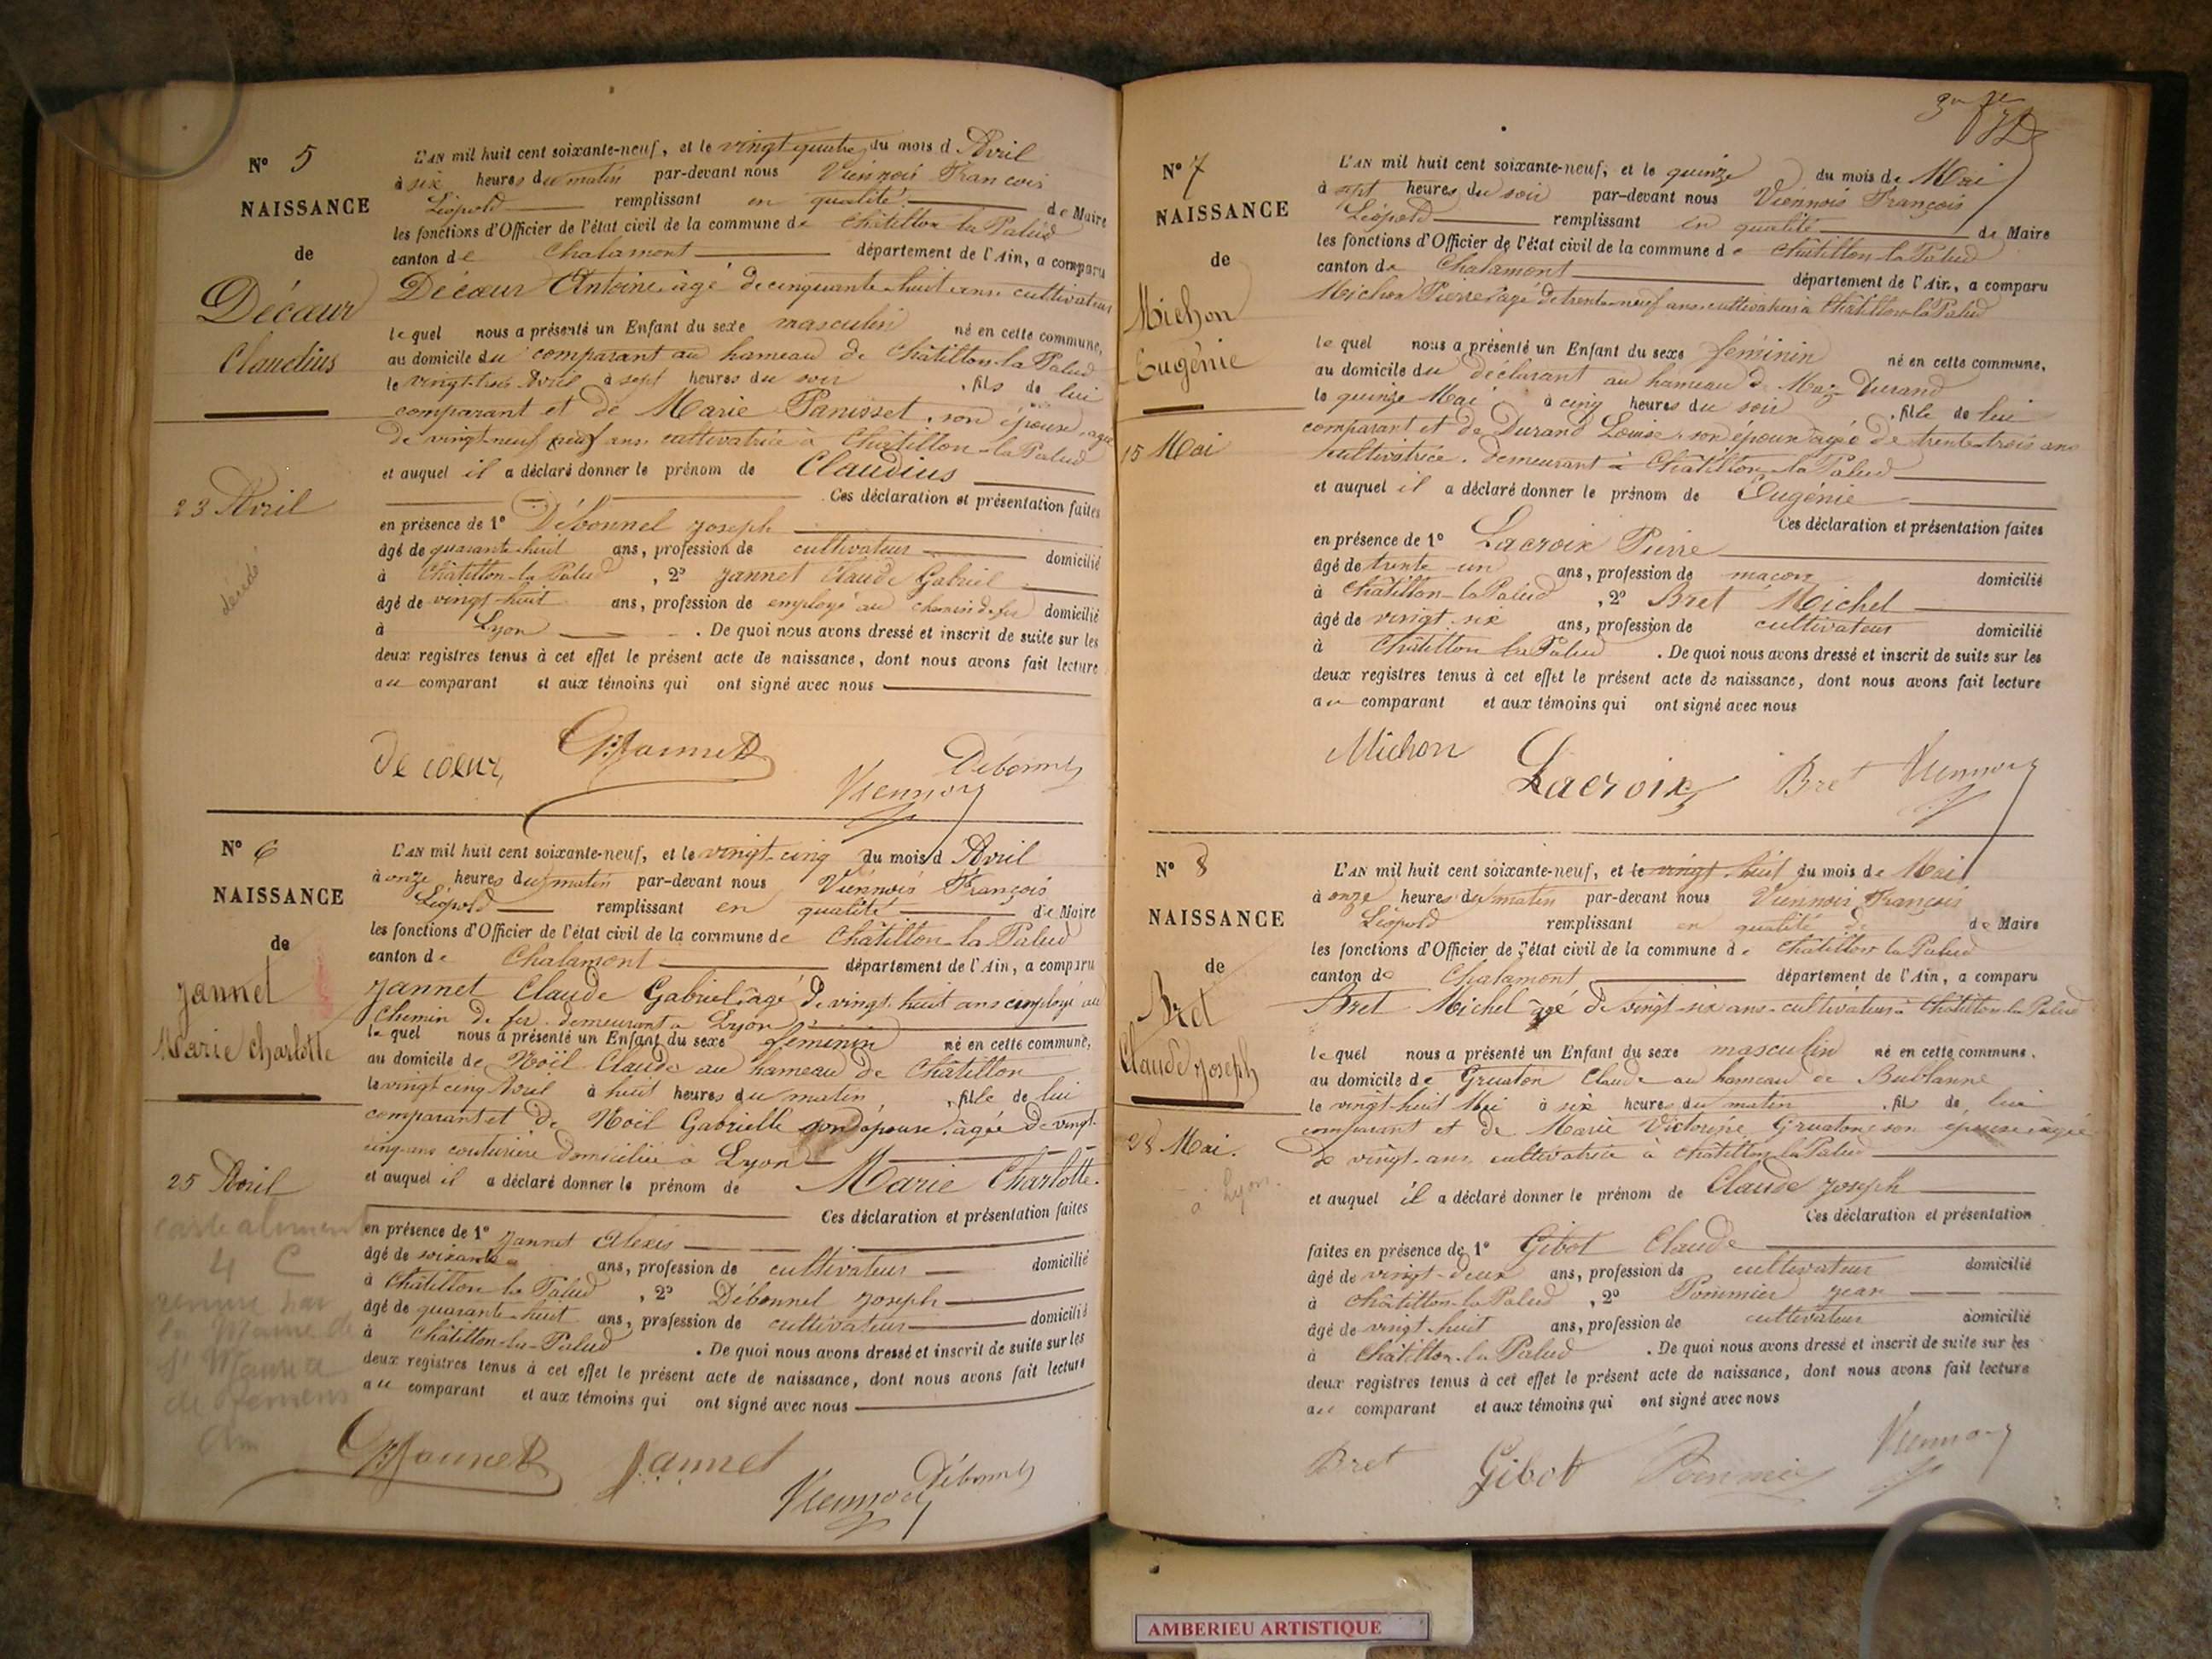 N° 5
NAISSANCE
de
Décœur
Claudius
23 Avril
décédé
L'AN mil huit cent soixante-neuf, et le vingt quatre du mois d'Avril
à six heures du matin par-devant nous Viennois François
Léopold remplissant en qualité de Maire
les fonctions d'Officier de l'état civil de la commune de Châtillon la Palud
canton de Chalamont département de l'Ain, a comparu
Décœur Antoine âgé de cinquante-huit ans cultivateur
lequel nous a présenté un Enfant du sexe masculin né en cette commune,
au domicile du comparant au hameau de Châtillon-la Palud
le vingt-trois Avril à sept heures du soir, fils de lui
comparant et de Marie Panisset, son épouse, âgée
de vingt-neuf neuf ans cultivatrice à Châtillon-la Palud
et auquel il a déclaré donner le prénom de Claudius
Ces déclaration et présentation faites
en présence de 1° Débonnel Joseph
âgé de quarante-huit ans, profession de cultivateur domicilié
à Châtillon-la Palud, 2° Jannet Claude Gabriel
âgé de vingt-huit ans, profession de employé au chemin de fer domicilié
à Lyon. De quoi nous avons dressé et inscrit de suite sur les
deux registres tenus à cet effet le présent acte de naissance, dont nous avons fait lecture
au comparant et aux témoins qui ont signé avec nous
de cœur, G. Jannet Débonnel
Viennois
N° 6
NAISSANCE
de
Jannet
Marie Charlotte
25 Avril
carte aliment
4 C
remise par
la Mairie de
St Maurice
de Remens
Ain
L'AN mil huit cent soixante-neuf, et le vingt-cinq du mois d'Avril
à onze heures du matin par-devant nous Viennois François
Léopold remplissant en qualité de Maire
les fonctions d'Officier de l'état civil de la commune de Châtillon-la Palud
canton de Chalamont département de l'Ain, a comparu
Jannet Claude Gabriel âgé de vingt-huit ans employé au
Chemin de fer demeurant à Lyon
lequel nous a présenté un Enfant du sexe féminin né en cette commune,
au domicile de Noël Claude au hameau de Châtillon
le vingt cinq Avril à huit heures du matin, fille de lui
comparant et de Noël Gabrielle son épouse, âgée de vingt-
cinq ans couturière domiciliée à Lyon
et auquel il a déclaré donner le prénom de Marie Charlotte.
Ces déclaration et présentation faites
en présence de 1° Jannet Alexis
âgé de soixante ans, profession de cultivateur domicilié
à Châtillon la Palud, 2° Débonnel Joseph
âgé de quarante-huit ans, profession de cultivateur domicilié
à Châtillon-la-Palud. De quoi nous avons dressé et inscrit de suite sur les
deux registres tenus à cet effet le présent acte de naissance, dont nous avons fait lecture
au comparant et aux témoins qui ont signé avec nous
G. Jannet Jannet Débonnel
Viennois
N° 7
NAISSANCE
de
Michon
Eugénie
15 Mai
L'AN mil huit cent soixante-neuf, et le quinze du mois de Mai
à sept heures du soir par-devant nous Viennois François
Léopold remplissant en qualité de Maire
les fonctions d'Officier de l'état civil de la commune de Châtillon-la Palud
canton de Chalamont département de l'Ain, a comparu
Michon Pierre âgé de trente-neuf ans cultivateur à Châtillon-la Palud
lequel nous a présenté un Enfant du sexe féminin né en cette commune,
au domicile du déclarant au hameau de Maz-Durand
le quinze Mai à cinq heures du soir, fille de lui
comparant et de Durand Louise, son épouse âgée de trente-trois ans
cultivatrice demeurant à Châtillon-la Palud
et auquel il a déclaré donner le prénom de Eugénie
Ces déclaration et présentation faites
en présence de 1° Lacroix Pierre
âgé de trente-un ans, profession de maçon domicilié
à Châtillon-la Palud, 2° Bret Michel
âgé de vingt-six ans, profession de cultivateur domicilié
à Châtillon la Palud. De quoi nous avons dressé et inscrit de suite sur les
deux registres tenus à cet effet le présent acte de naissance, dont nous avons fait lecture
au comparant et aux témoins qui ont signé avec nous
Michon Lacroix Bret Viennois
N° 8
NAISSANCE
de
Bret
Claude Joseph
28 Mai.
à Lyon.
L'AN mil huit cent soixante-neuf, et le vingt-huit du mois de Mai
à onze heures du matin par-devant nous Viennois François
Léopold remplissant en qualité de de Maire
les fonctions d'Officier de l'état civil de la commune de Châtillon la Palud
canton de Chalamont département de l'Ain, a comparu
Bret Michel âgé de vingt-six ans cultivateur à Châtillon-la Palud
lequel nous a présenté un Enfant du sexe masculin né en cette commune,
au domicile de Gruaton Claude au hameau de Bublanne
le vingt-huit Mai à six heures du matin, fils de lui
comparant et de Marie Victorine Gruaton son épouse âgée
de vingt ans cultivatrice à Châtillon la Palud
et auquel il a déclaré donner le prénom de Claude Joseph
Ces déclaration et présentation
faites en présence de 1° Gibot Claude
âgé de vingt-deux ans, profession de cultivateur domicilié
à Châtillon-la Palud, 2° Pommier Jean
âgé de vingt huit ans, profession de cultivateur domicilié
à Châtillon-la Palud. De quoi nous avons dressé et inscrit de suite sur les
deux registres tenus à cet effet le présent acte de naissance, dont nous avons fait lecture
au comparant et aux témoins qui ont signé avec nous
Bret Gibot Pommier Viennois
AMBERIEU ARTISTIQUE